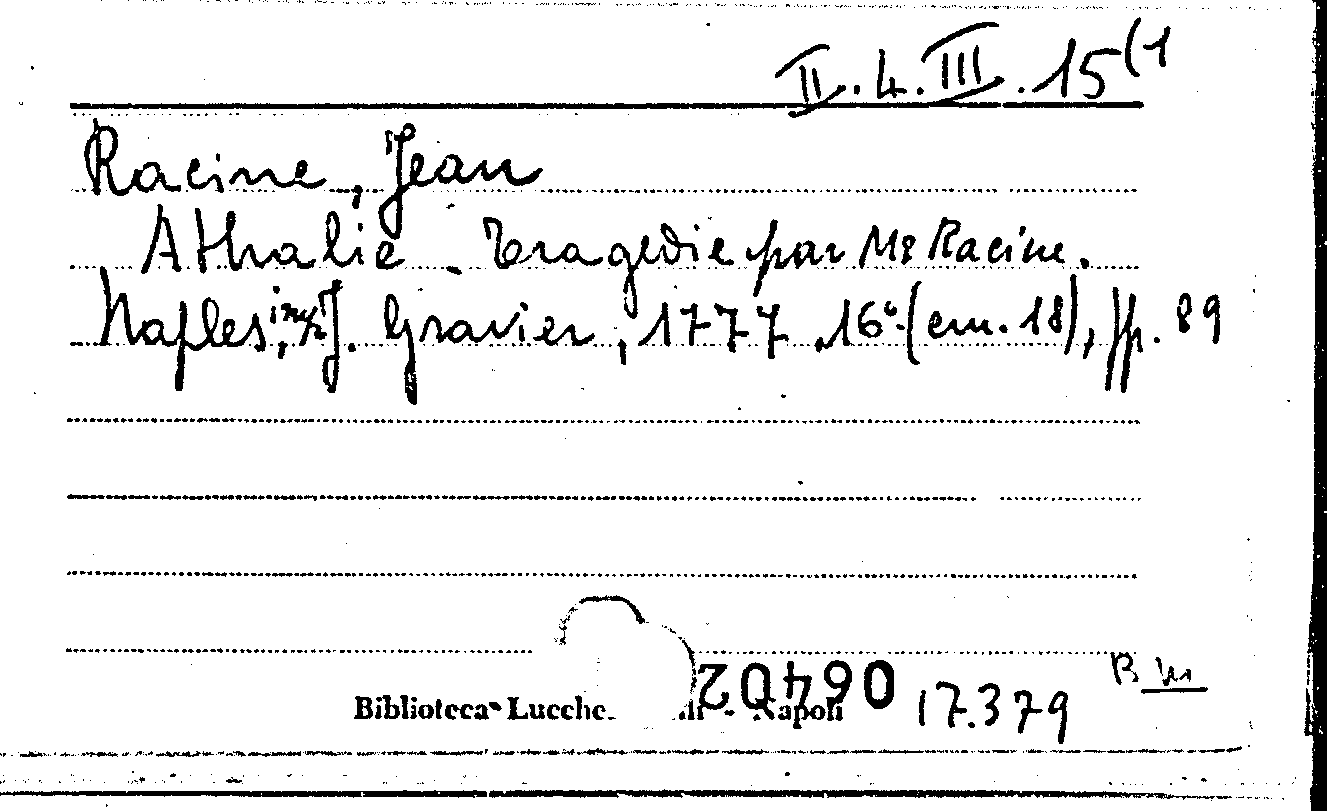 II.4.III.15(1
Racine, Jean
Athalie. Tragedie par Mr Racine.
Naples, J. Gravier, 1777.16°.(cm.18), pp. 89
Biblioteca Lucche. - Napoli 06402 17.379